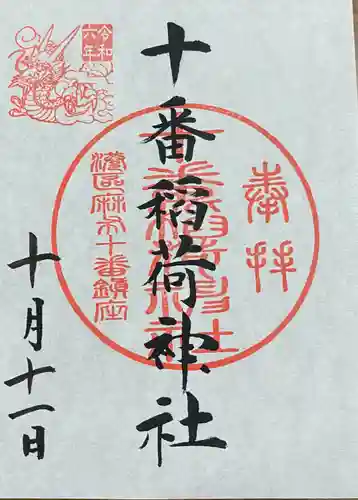 奉拝
十番稲荷神社
港区麻布十番鎮座
令和
六年
十月十一日